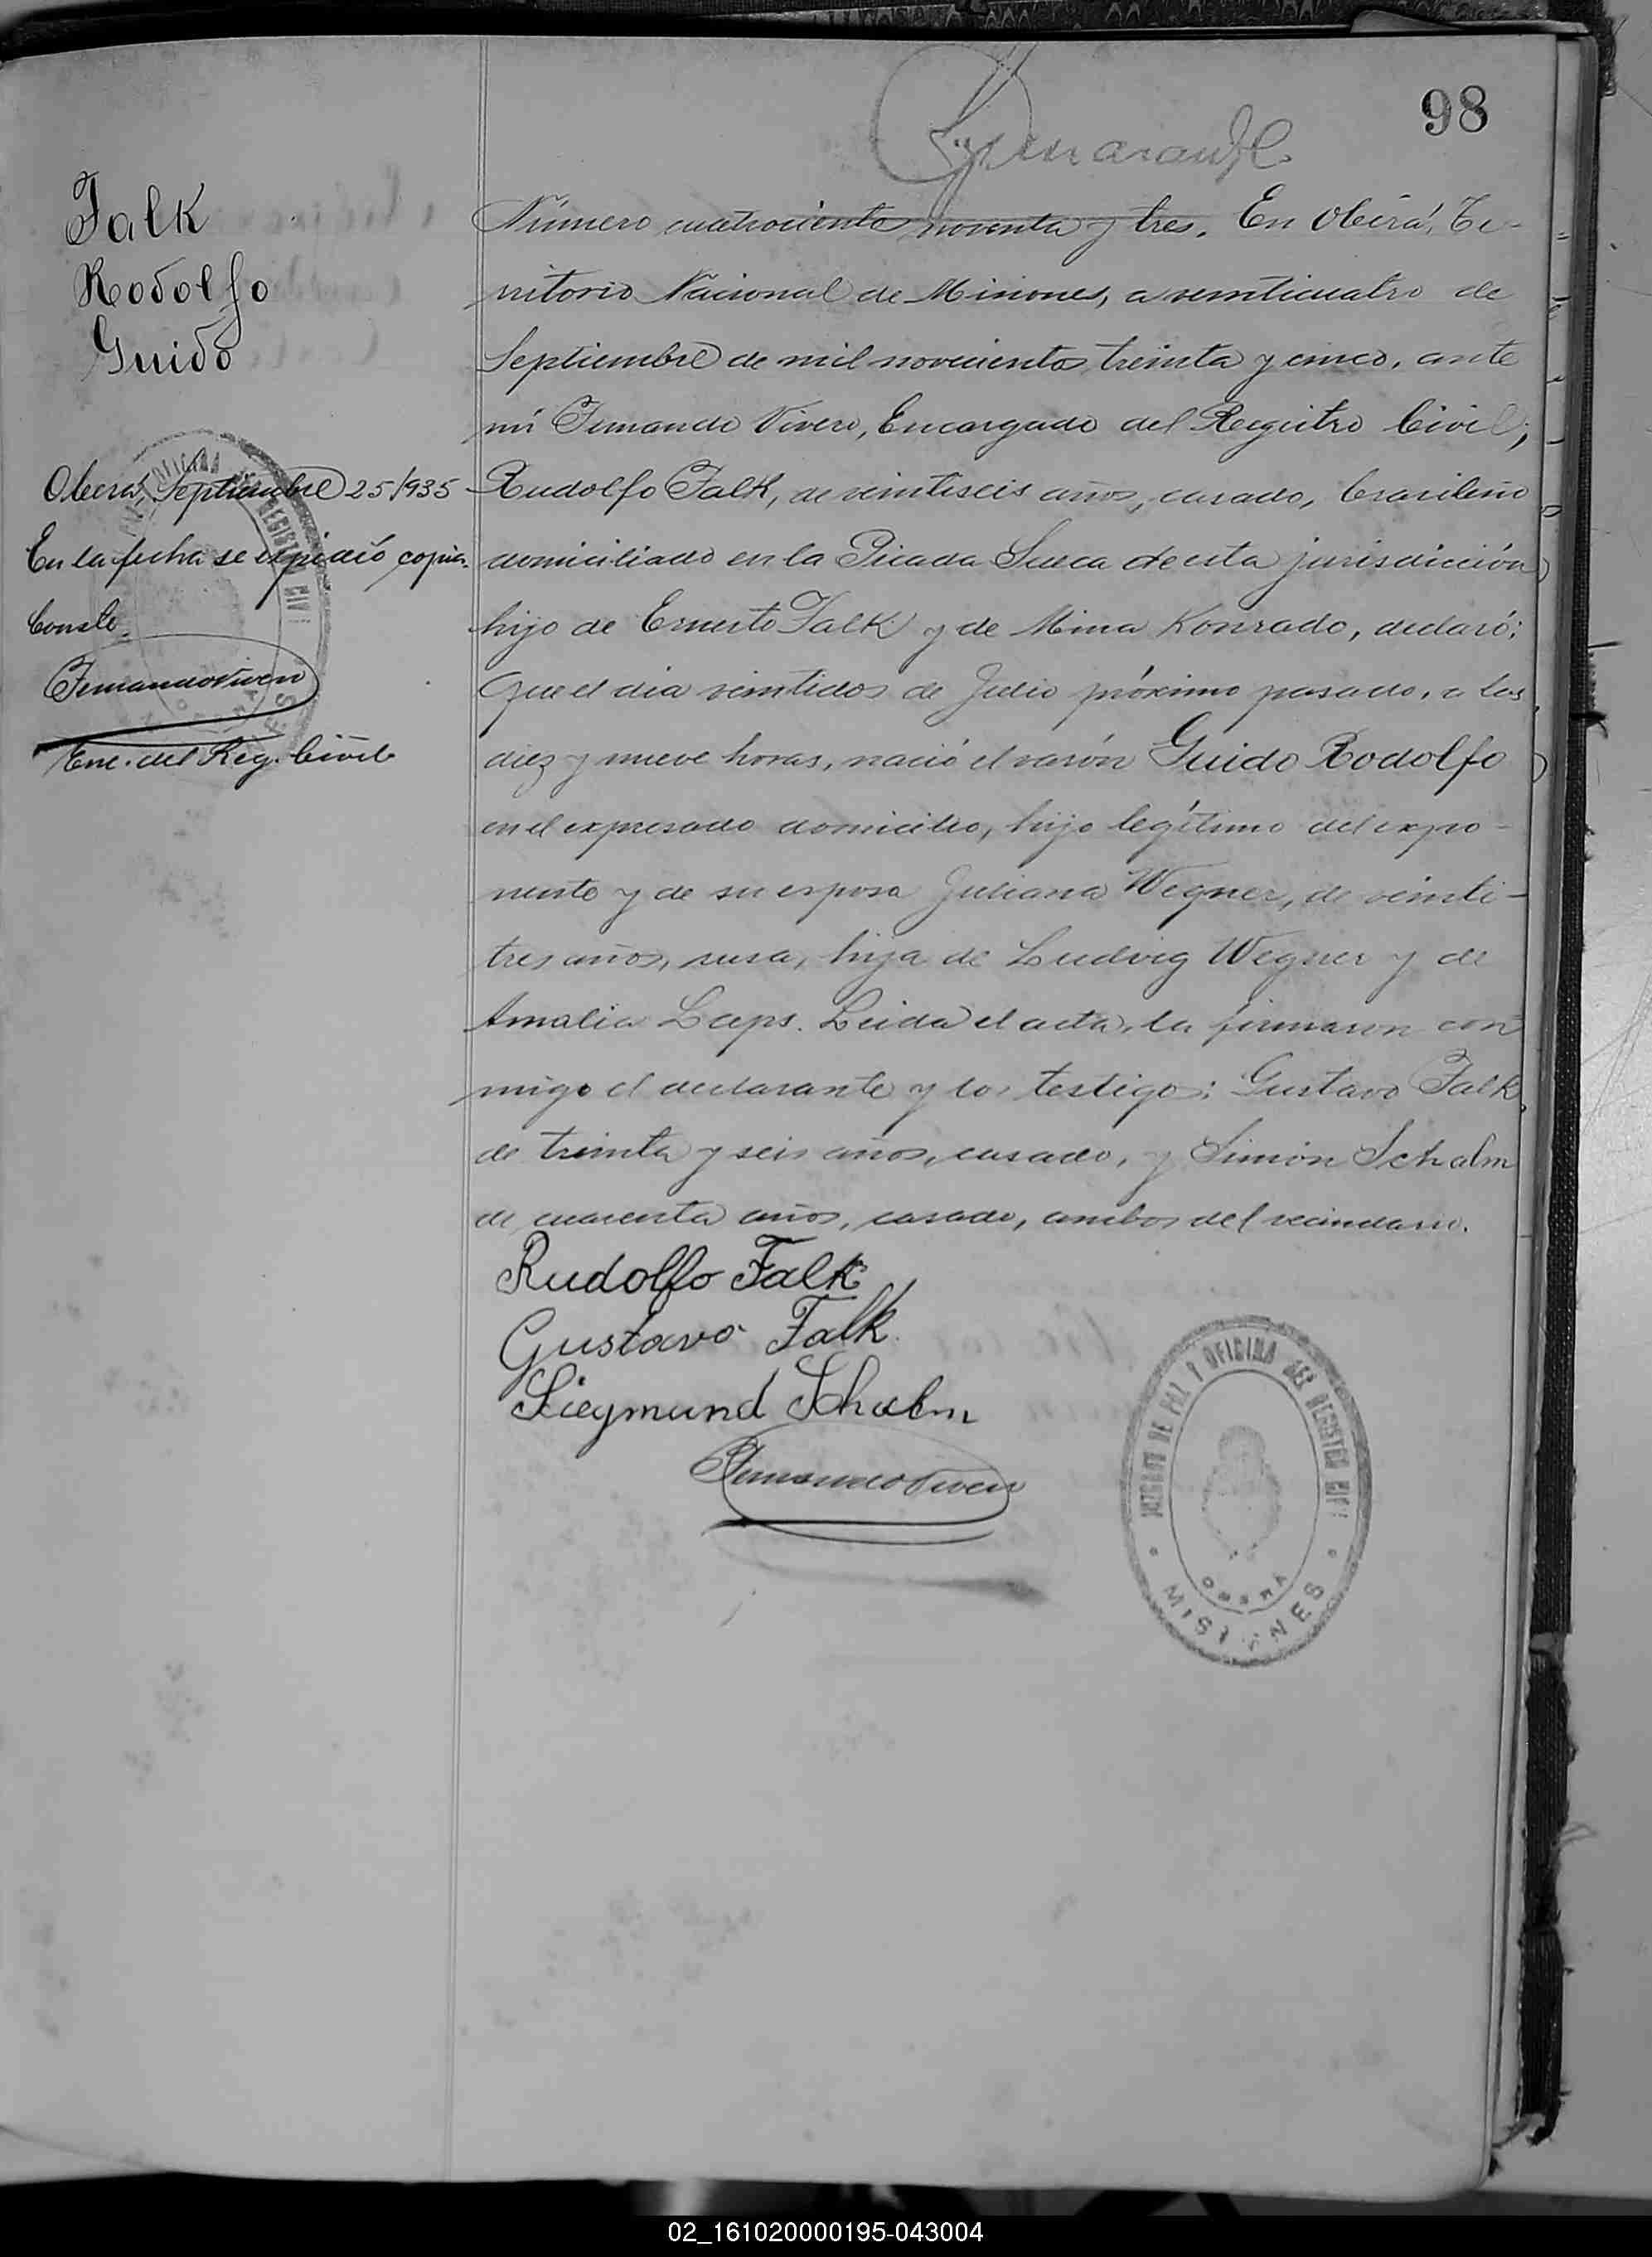 98
Falk
Rodolfo
Guido
Oberá, Septiembre 25/935
En la fecha se expidió copia.
Conste.
Fernando Vivero
Enc. del Reg. Civil
Número cuatrocientos noventa y tres. En Oberá, Te-
rritorio Nacional de Misiones, a veinticuatro de
Septiembre de mil novecientos treinta y cinco, ante
mí Fernando Vivero, Encargado del Registro Civil,
Rudolfo Falk, de veintiseis años, casado, brasileño
domiciliado en la Picada Sueca de esta jurisdicción
hijo de Ernesto Falk y de Mina Konrado, declaró:
Que el día veintidos de Julio próximo pasado, a las
diez y nueve horas, nació el varón Guido Rodolfo
en el expresado domicilio, hijo legítimo del expo-
nente y de su esposa Juliana Wegner, de veinti-
tres años, rusa, hija de Ludvig Wegner y de
Amalia Leps. Leida el acta, la firmaron con
migo el declarante y los testigos: Gustavo Falk
de treinta y seis años, casado, y Simón Schalm
de cuarenta años, casado, ambos del vecindario.
Rudolfo Falk
Gustavo Falk
Siegmund Schalm
Fernando Vivero
JUZGADO DE PAZ Y OFICINA DEL REGISTRO CIVIL
OBERÁ
MISIONES
02_161020000195-043004